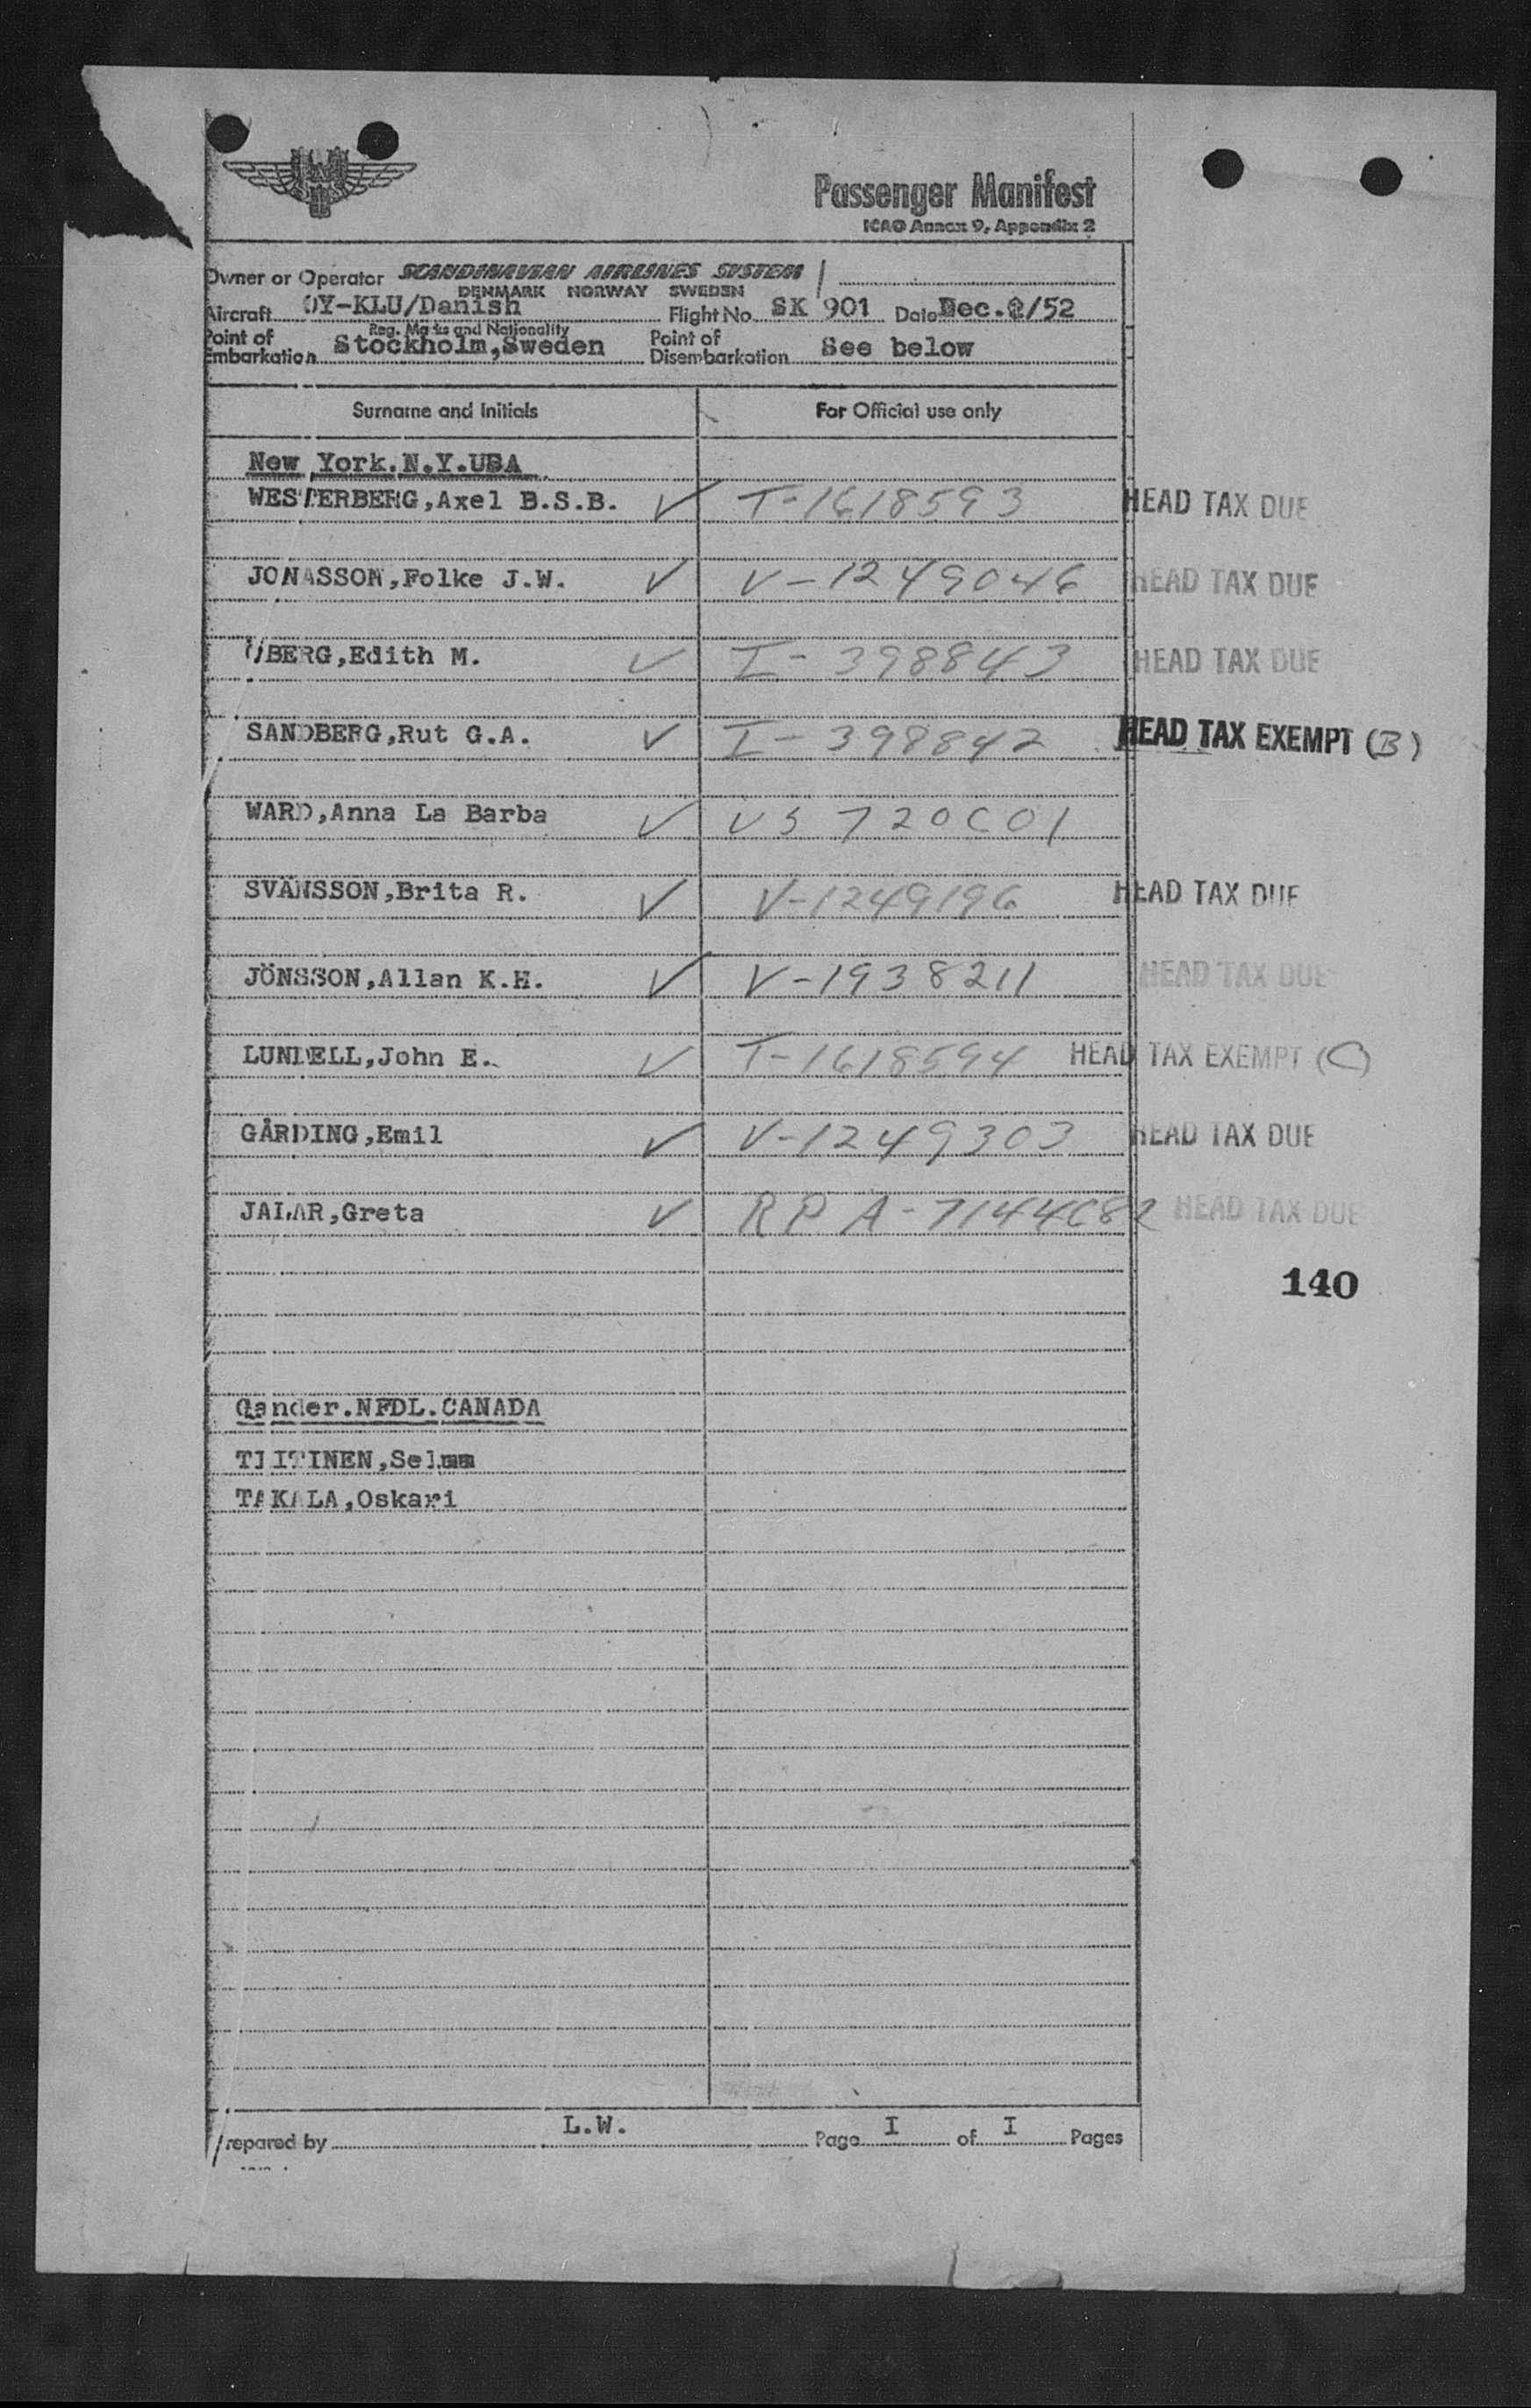 Passenger Manifest
ICAO Annex 9, Appendix 2
Owner or Operator SCANDINAVIAN AIRLINES SYSTEM
DENMARK NORWAY SWEDEN
Aircraft OY-KLU/Danish Flight No. SK 901 Date Dec. /52
Reg. Marks and Nationality
Point of Embarkation Stockholm,Sweden Point of Disembarkation See below
Surname and Initials For Official use only
New York.N.Y.USA
WESTERBERG,Axel B.S.B. ✓ T-1618593 HEAD TAX DUE
JONASSON,Folke J.W. ✓ V-1249046 HEAD TAX DUE
BERG,Edith M. ✓ I-398843 HEAD TAX DUE
SANDBERG,Rut G.A. ✓ I-398842 HEAD TAX EXEMPT (B)
WARD,Anna La Barba ✓ VS 720601 
SVÄNSSON,Brita R. ✓ V-1249196 HEAD TAX DUE
JÖNSSON,Allan K.H. ✓ V-1938211 HEAD TAX DUE
LUNDELL,John E. ✓ T-1618594 HEAD TAX EXEMPT (C)
GÅRDING,Emil ✓ V-1249303 HEAD TAX DUE
JALAR,Greta ✓ RP A- HEAD TAX DUE
140
Gander.NFDL.CANADA
TIITINEN,
TAKALA,Oskari
L.W.
Prepared by Page I of I Pages